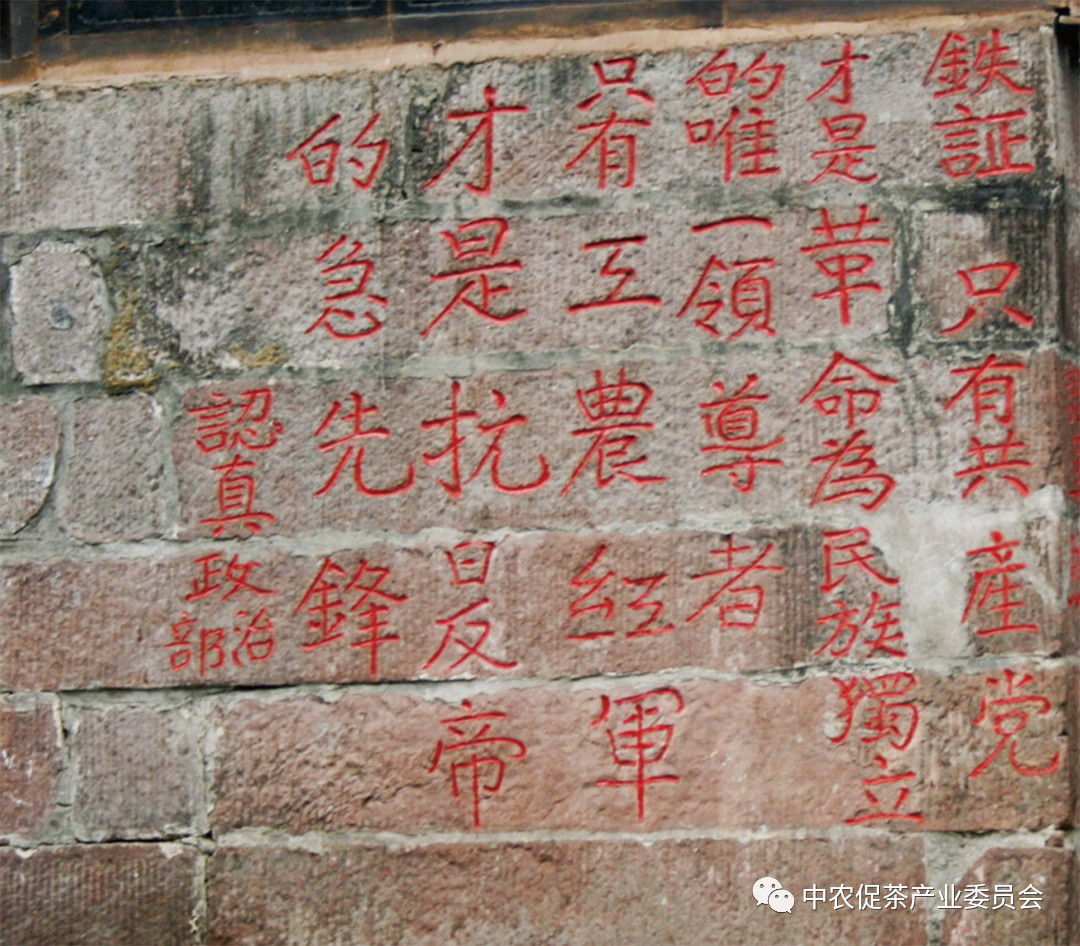 鉄証 只有共產党
才是革命為民族獨立
的唯一領導者
只有工農紅軍
才是抗日反帝
的急先鋒
認真政治部
中农促茶产业委员会